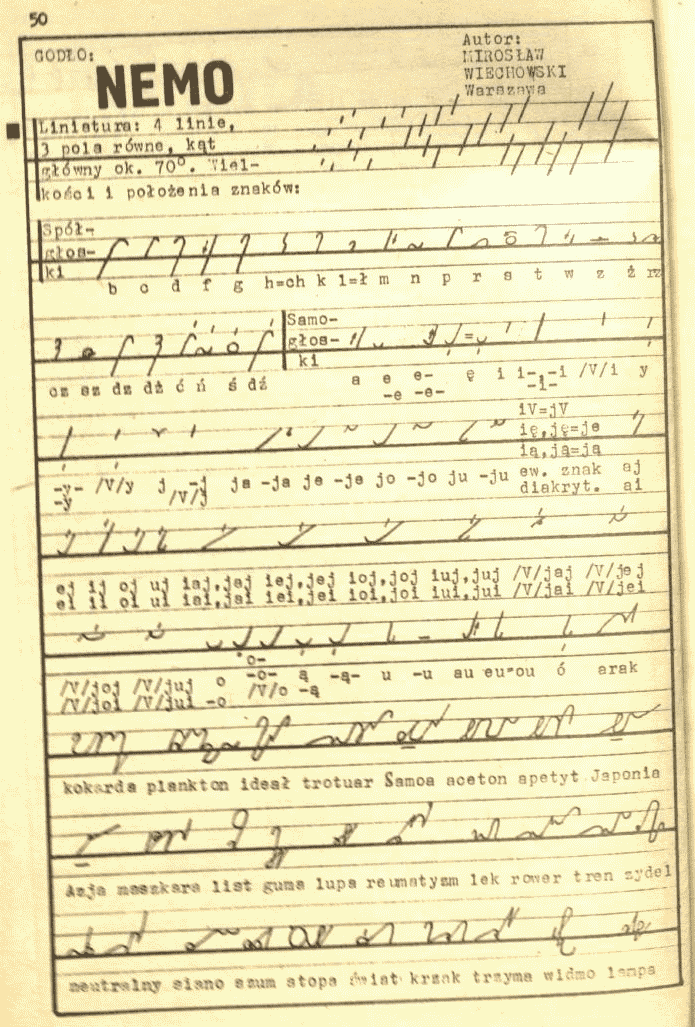 50
GODŁO:
NEMO
Autor:
MIROSŁAW
WIECHOWSKI
Warszawa
Liniatura: 4 linie,
3 pola równe, kąt
główny ok. 70°. Wiel-
kości i położenia znaków:
Spół-
głos-
ki
b c d f g h=ch k l=ł m n p r s t w z ż rz
cz sz dz dż ć ń ś dź
Samo-
głos-
ki
a e e- ę i i-,-i /V/i y
-e -e- -i-
iV=jV
ię,ję=je
ią,ją=ja
-y- /V/y j -j ja -ja je -je jo -jo ju -ju ew. znak aj
-y /V/j diakryt. ai
ej ij oj uj iaj,jaj iej,jej ioj,joj iuj,juj /V/jaj /V/jej
ei ii oi ui iai,jai iei,jei ioi,joi iui,jui /V/jai /V/jei
/V/joj /V/juj o o- ą -ą- u -u au eu=ou ó arak
/V/joi /V/jui -o -o- /V/o -ą
kokarda plankton ideał trotuar Samoa aceton apetyt Japonia
Azja maszkara list guma lupa reumatyzm lek rower tren zydel
neutralny siano szum stopa świat krzak trzyma widmo lampa